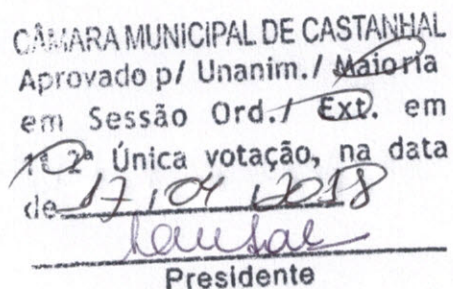 CÂMARA MUNICIPAL DE CASTANHAL
Aprovado p/ Unanim./ Maioria
em Sessão Ord./ Ext. em
1ª 2ª Única votação, na data
de 17, 04, 2018
Presidente